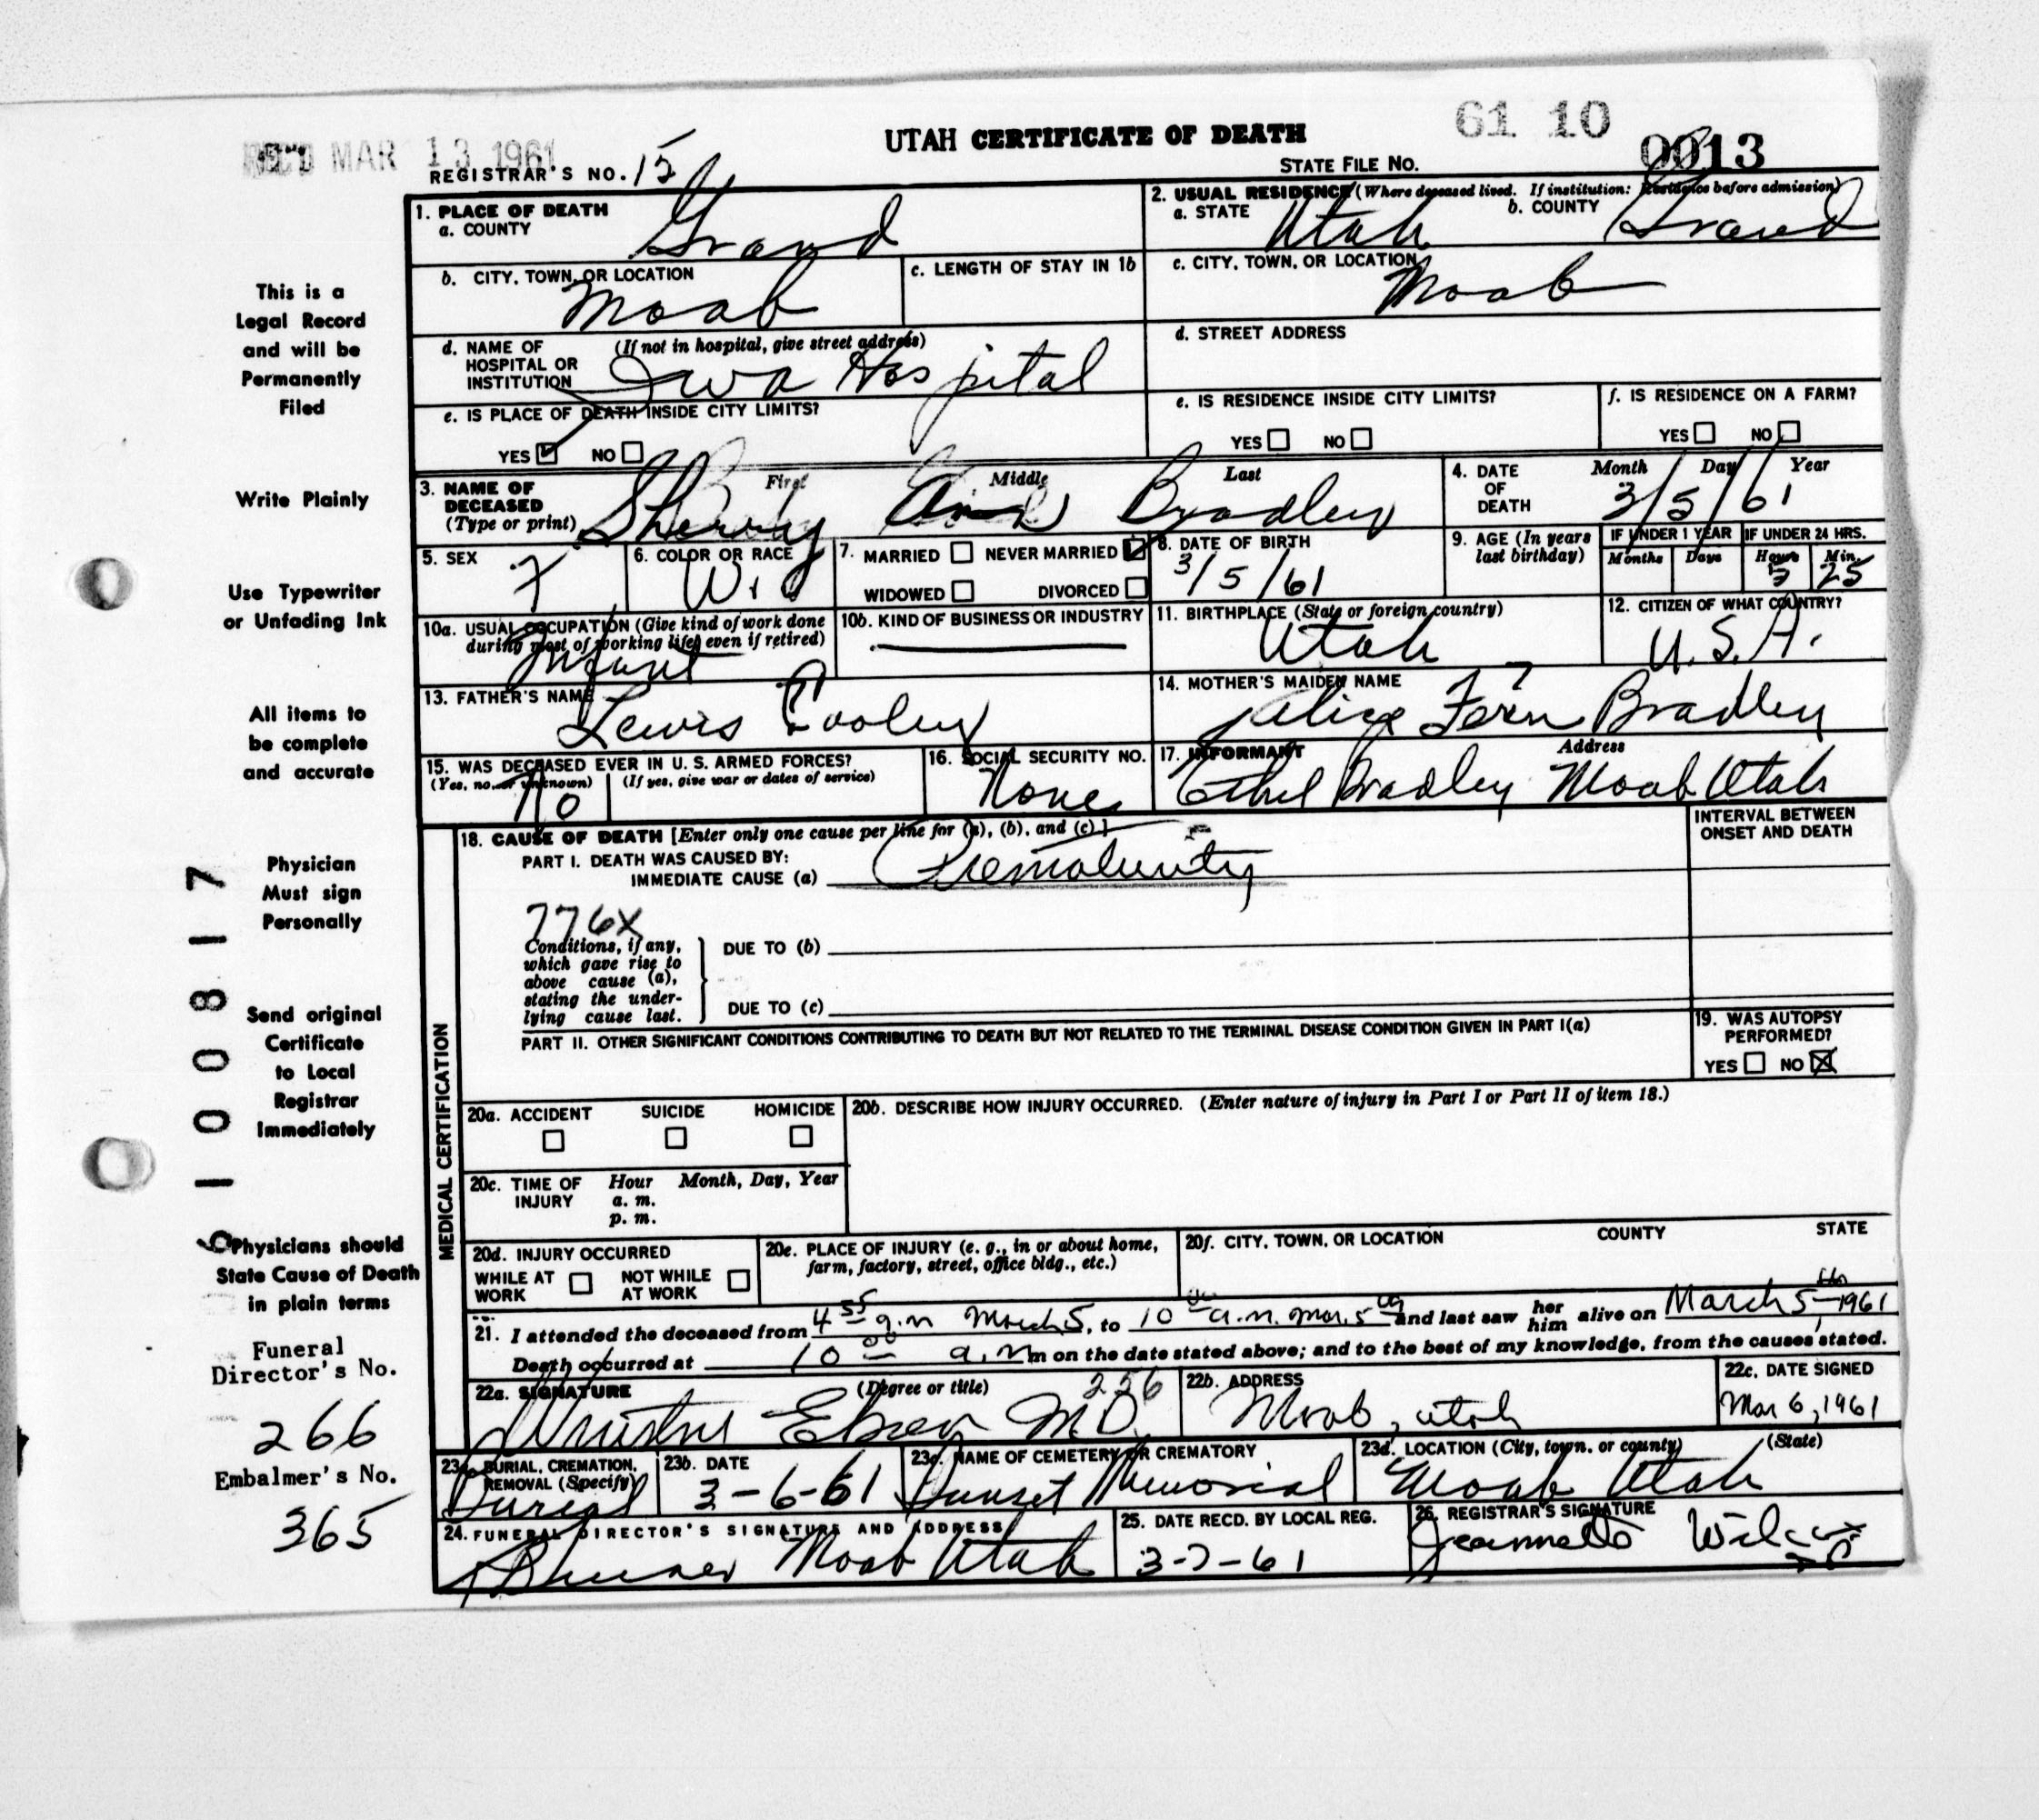 REC'D MAR 13 1961
UTAH CERTIFICATE OF DEATH
61 10
0013
REGISTRAR'S NO. 15
STATE FILE NO.
1. PLACE OF DEATH
a. COUNTY Grand
2. USUAL RESIDENCE (Where deceased lived. If institution: Residence before admission)
a. STATE Utah b. COUNTY Grand
b. CITY, TOWN, OR LOCATION Moab
c. LENGTH OF STAY IN 1b
c. CITY, TOWN, OR LOCATION Moab
d. NAME OF HOSPITAL OR INSTITUTION (If not in hospital, give street address) Hospital
d. STREET ADDRESS
e. IS PLACE OF DEATH INSIDE CITY LIMITS?
YES NO
e. IS RESIDENCE INSIDE CITY LIMITS?
YES NO
f. IS RESIDENCE ON A FARM?
YES NO
3. NAME OF DECEASED (Type or print) First Middle Last
Sherry Ann Bradley
4. DATE OF DEATH Month Day Year
3/5/61
5. SEX F
6. COLOR OR RACE W.
7. MARRIED NEVER MARRIED
WIDOWED DIVORCED
8. DATE OF BIRTH 3/5/61
9. AGE (In years last birthday)
IF UNDER 1 YEAR Months Days
IF UNDER 24 HRS. Hours Min.
5 25
10a. USUAL OCCUPATION (Give kind of work done during most of working life, even if retired) Infant
10b. KIND OF BUSINESS OR INDUSTRY
11. BIRTHPLACE (State or foreign country) Utah
12. CITIZEN OF WHAT COUNTRY? U.S.A.
13. FATHER'S NAME Lewis
14. MOTHER'S MAIDEN NAME Alice Fern Bradley
15. WAS DECEASED EVER IN U. S. ARMED FORCES?
(Yes, no, or unknown) (If yes, give war or dates of service) No
16. SOCIAL SECURITY NO. None
17. INFORMANT Address
Ethel Bradley Moab Utah
18. CAUSE OF DEATH [Enter only one cause per line for (a), (b), and (c).]
INTERVAL BETWEEN ONSET AND DEATH
PART I. DEATH WAS CAUSED BY:
IMMEDIATE CAUSE (a) Prematurity
776X
Conditions, if any, which gave rise to above cause (a), stating the underlying cause last.
DUE TO (b)
DUE TO (c)
PART II. OTHER SIGNIFICANT CONDITIONS CONTRIBUTING TO DEATH BUT NOT RELATED TO THE TERMINAL DISEASE CONDITION GIVEN IN PART I(a)
19. WAS AUTOPSY PERFORMED?
YES NO
MEDICAL CERTIFICATION
20a. ACCIDENT SUICIDE HOMICIDE
20b. DESCRIBE HOW INJURY OCCURRED. (Enter nature of injury in Part I or Part II of item 18.)
20c. TIME OF INJURY Hour Month, Day, Year
a. m.
p. m.
20d. INJURY OCCURRED
WHILE AT WORK NOT WHILE AT WORK
20e. PLACE OF INJURY (e. g., in or about home, farm, factory, street, office bldg., etc.)
20f. CITY, TOWN, OR LOCATION COUNTY STATE
21. I attended the deceased from 4 55 a.m March 5, to 10 00 a.m. Mar. 5 and last saw her him alive on March 5th 1961
Death occurred at 10 00 a.m m on the date stated above; and to the best of my knowledge, from the causes stated.
22a. SIGNATURE (Degree or title) 256
M.D.
22b. ADDRESS
Moab, Utah
22c. DATE SIGNED
Mar 6, 1961
23a. BURIAL, CREMATION, REMOVAL (Specify) Burial
23b. DATE 3-6-61
23c. NAME OF CEMETERY OR CREMATORY Sunset Memorial
23d. LOCATION (City, town, or county) (State)
Moab Utah
24. FUNERAL DIRECTOR'S SIGNATURE AND ADDRESS
Moab Utah
25. DATE RECD. BY LOCAL REG.
3-7-61
26. REGISTRAR'S SIGNATURE
Jeannette Wilcox
This is a
Legal Record
and will be
Permanently
Filed
Write Plainly
Use Typewriter
or Unfading Ink
All items to
be complete
and accurate
Physician
Must sign
Personally
Send original
Certificate
to Local
Registrar
Immediately
Physicians should
State Cause of Death
in plain terms
Funeral
Director's No.
266
Embalmer's No.
365
100817